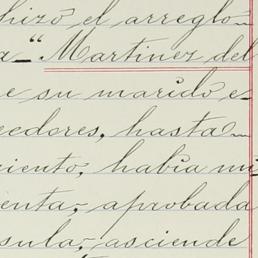 hizó el arreglo—
a—“Martinez del
e su marido e
eedores, hasta—
iento, había mu
enta,- aprobada
sula,- asciende